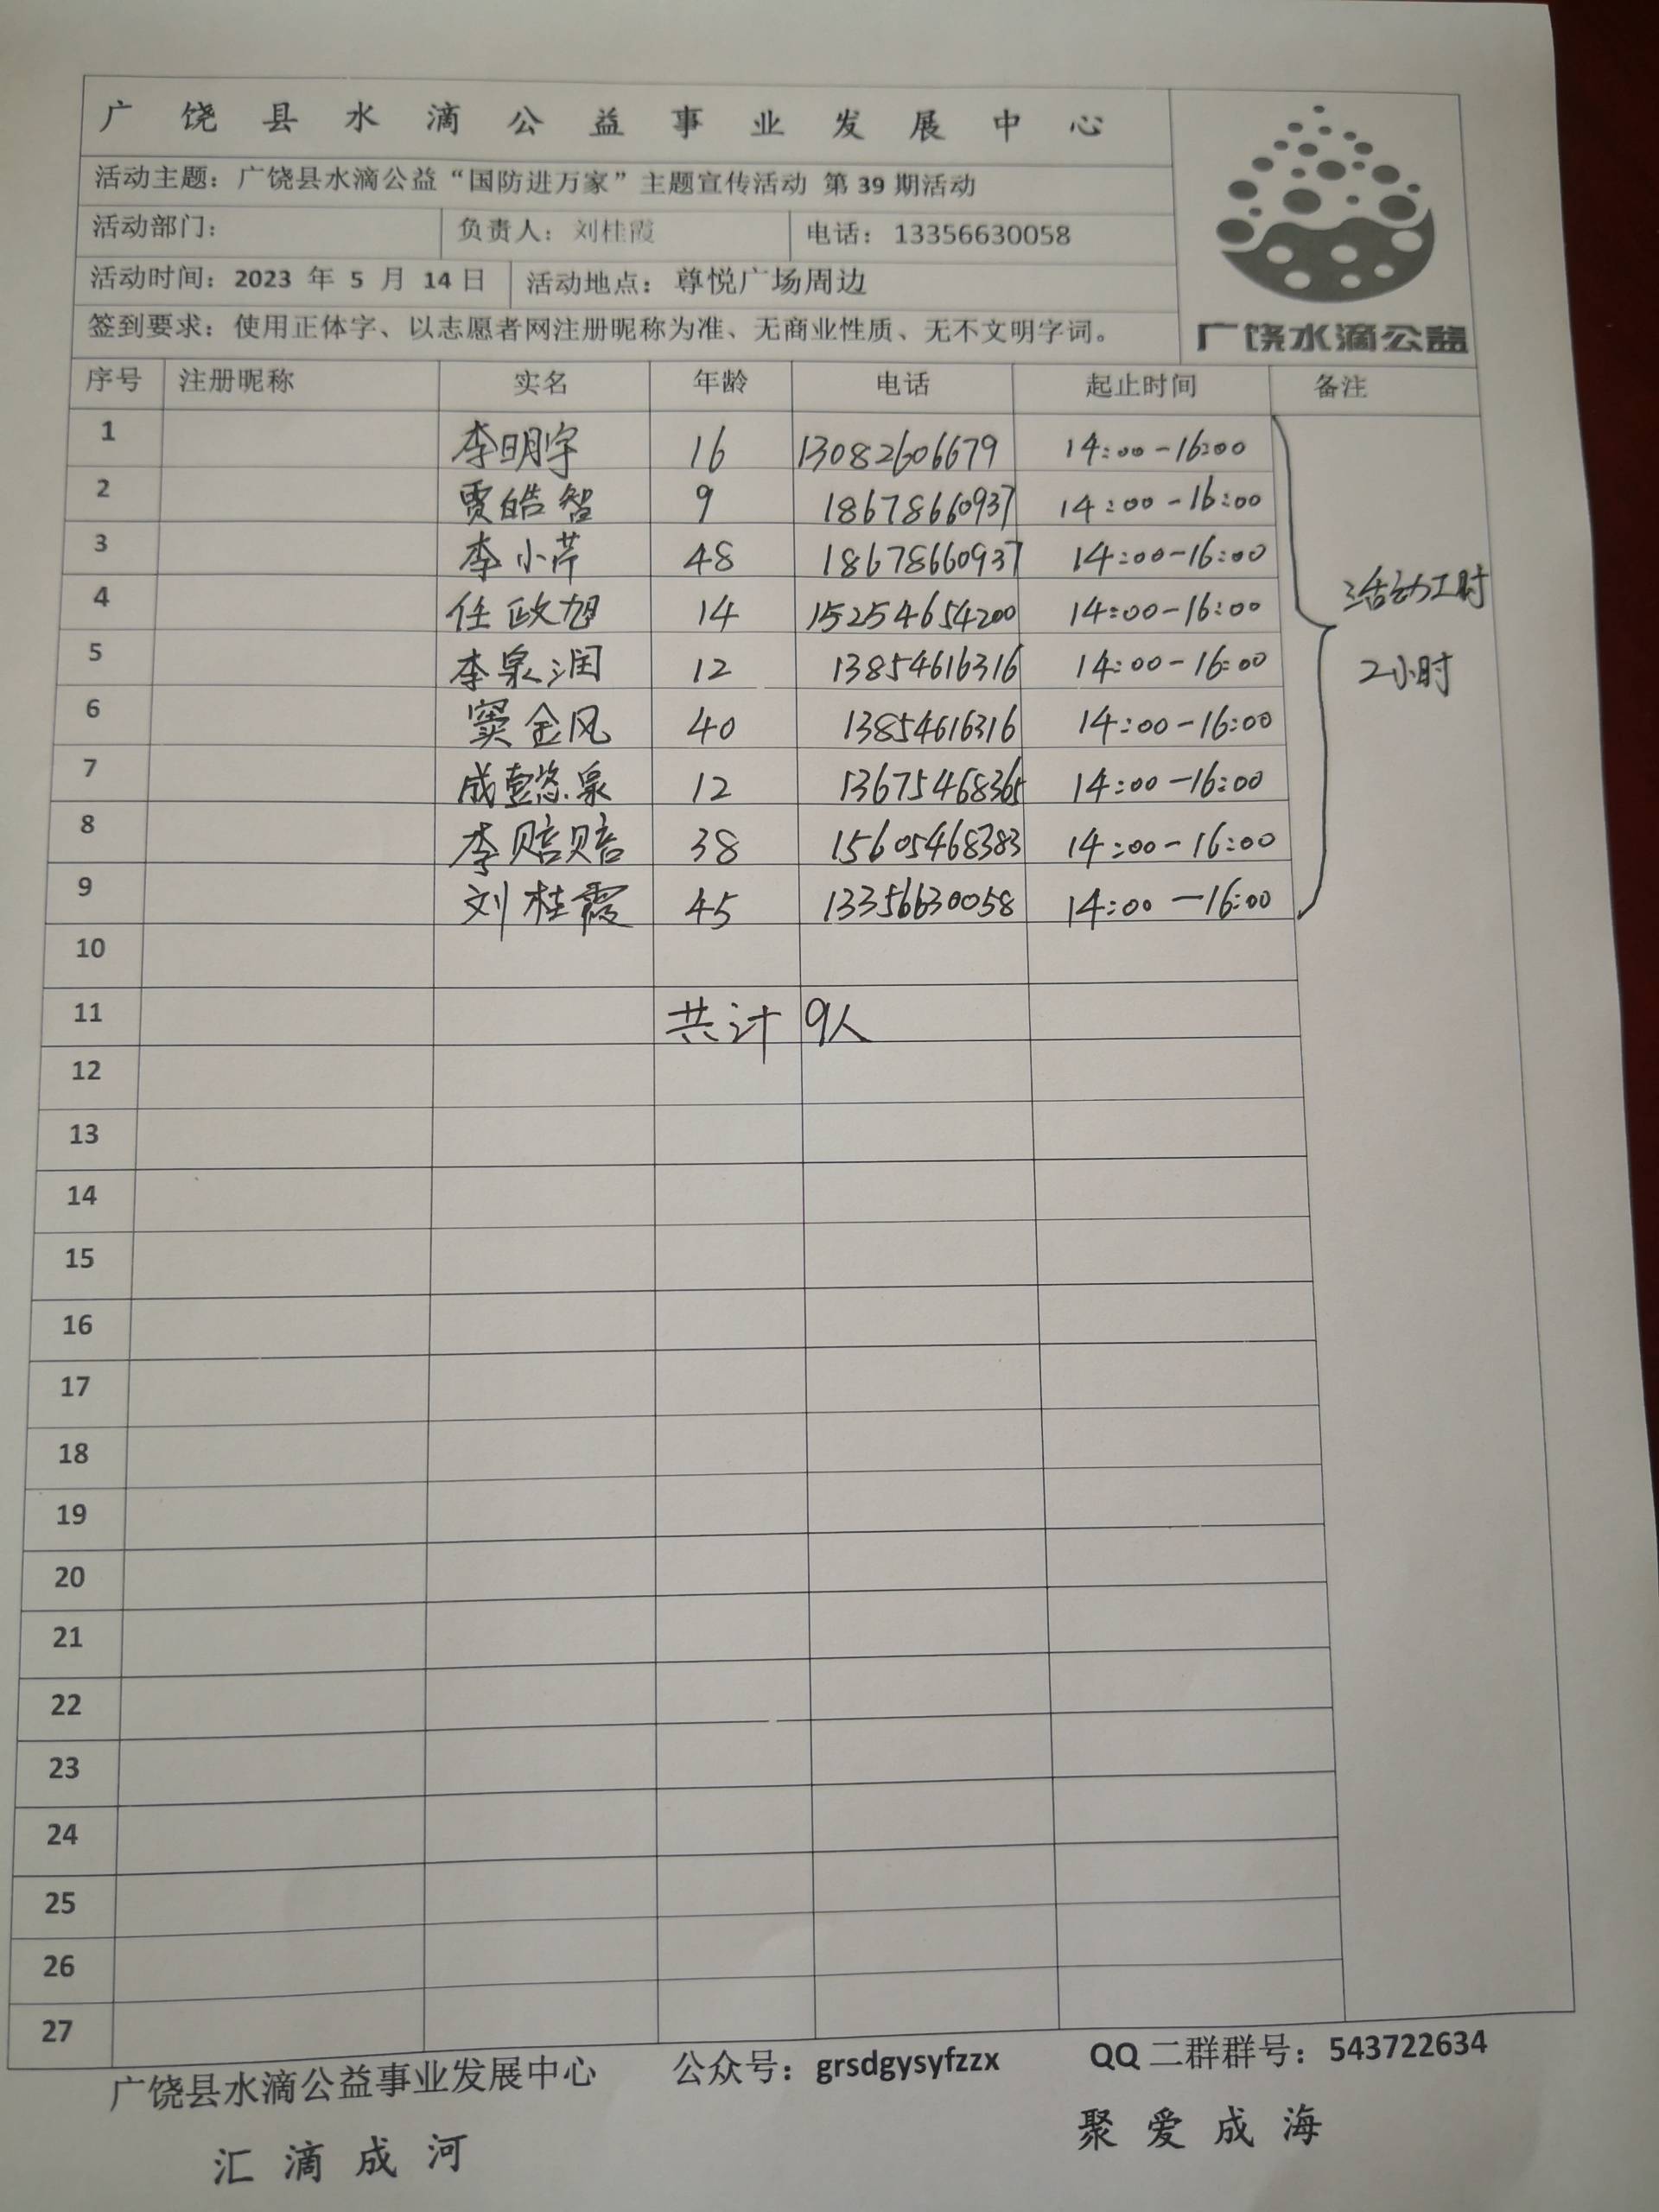 广饶县水滴公益事业发展中心
活动主题：广饶县水滴公益“国防进万家”主题宣传活动 第 39 期活动
活动部门： 负责人：刘桂霞 电话：13356630058
活动时间：2023 年 5 月 14 日 活动地点：尊悦广场周边
签到要求：使用正体字、以志愿者网注册昵称为准、无商业性质、无不文明字词。
广饶水滴公益
序号 注册昵称 实名 年龄 电话 起止时间 备注
1 李明宇 16 13082606679 14:00-16:00
2 贾皓智 9 18678660937 14:00-16:00
3 李小芹 48 18678660937 14:00-16:00
4 任政旭 14 15254654200 14:00-16:00
5 李泉润 12 13854616316 14:00-16:00
6 窦金风 40 13854616316 14:00-16:00
7 成 悠泉 12 13675468365 14:00-16:00
8 李赔赔 38 15605468383 14:00-16:00
9 刘桂霞 45 13356630058 14:00-16:00
活动工时
2小时
10
11 共计 9人
12
13
14
15
16
17
18
19
20
21
22
23
24
25
26
27
广饶县水滴公益事业发展中心 公众号：grsdgysyfzzx QQ 二群群号：543722634
汇滴成河 聚爱成海